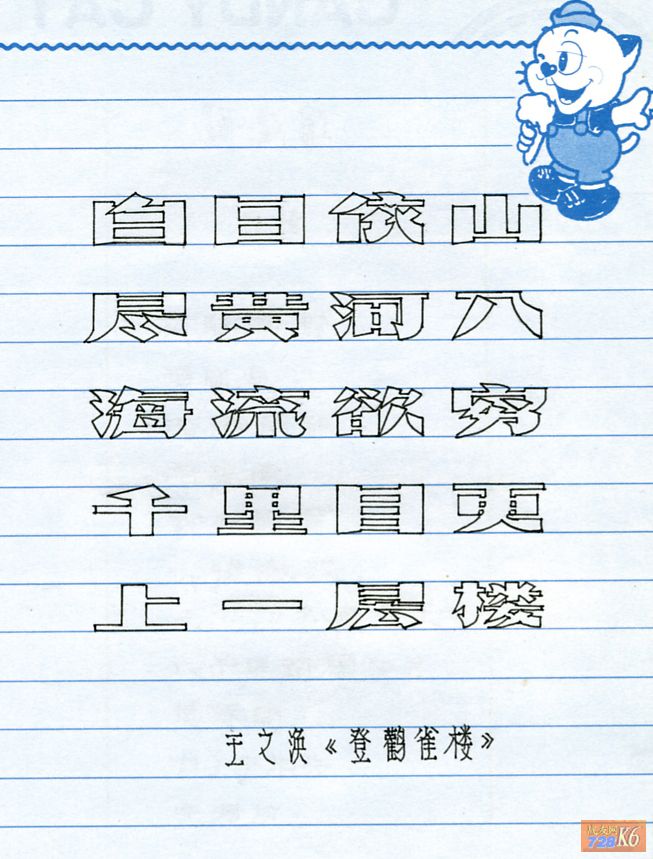 白日依山
尽黄河入
海流欲穷
千里目更
上一层楼
王之涣《登鹳雀楼》
战友网
728K6